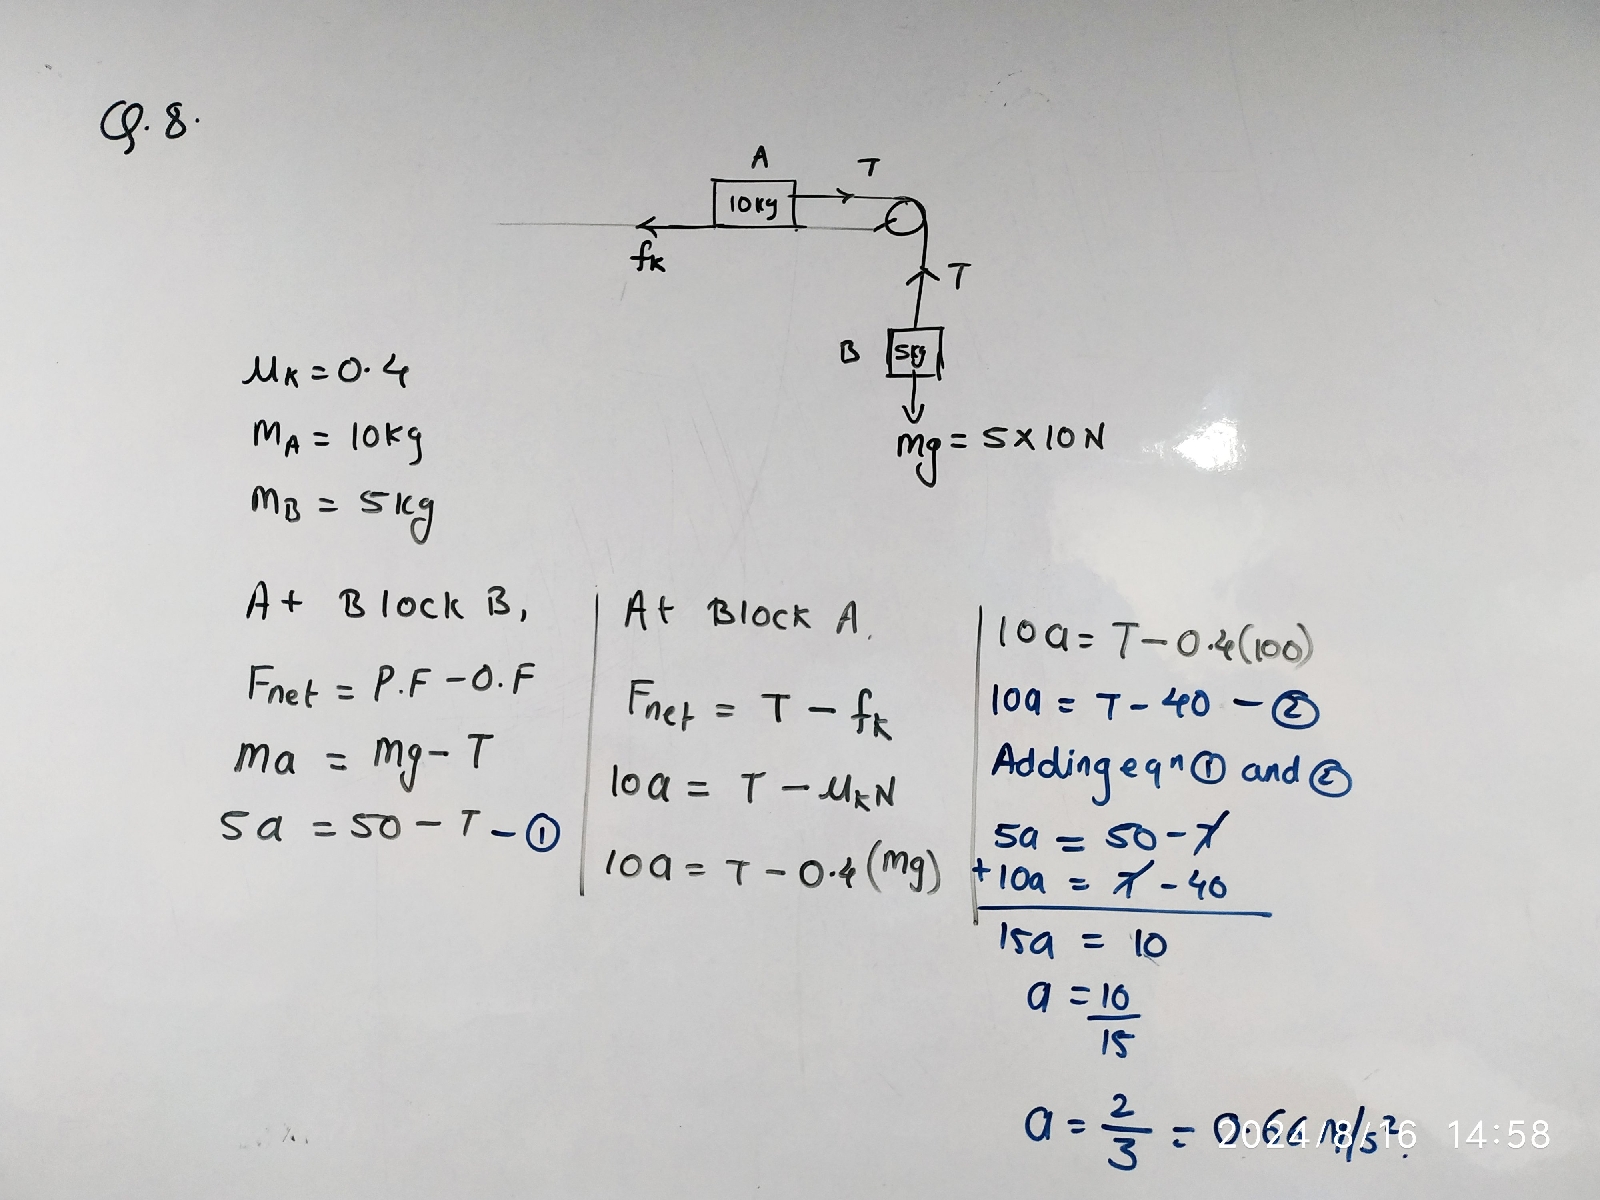 Q.8.
A
T
10kg
fK
T
B
5kg
mg = 5×10N
μK = 0.4
mA = 10kg
mB = 5kg
At Block B,
Fnet = P.F - O.F
ma = mg - T
5a = 50 - T - ①
At Block A.
Fnet = T - fk
10a = T - μKN
10a = T - 0.4(mg)
10a = T - 0.4(100)
10a = T - 40 - ②
Adding eqⁿ ① and ②
5a = 50 - T
+10a = T - 40
15a = 10
a = 10
15
a = 2/3 = 0.66 m/s².
2024/8/16 14:58